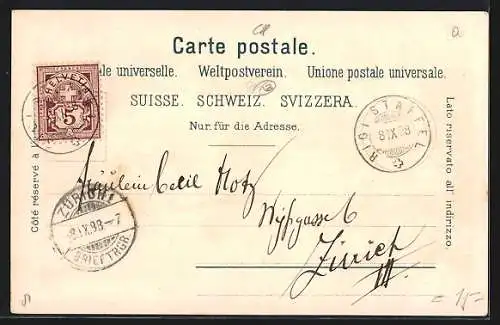 Carte postale.
le universelle. Weltpostverein. Unione postale universale.
SUISSE. SCHWEIZ. SVIZZERA.
Nur für die Adresse.
HELVETIA
5
RIGI STAFFEL
8 IX 98
Côté réservé à
Lato riservato all' indirizzo
Fräulein Cecil Motz
Wyßgasse 6
Zürich
III
ZÜRICH 1
8.IX.98.-7
BRIEFTRGR
= 15.=